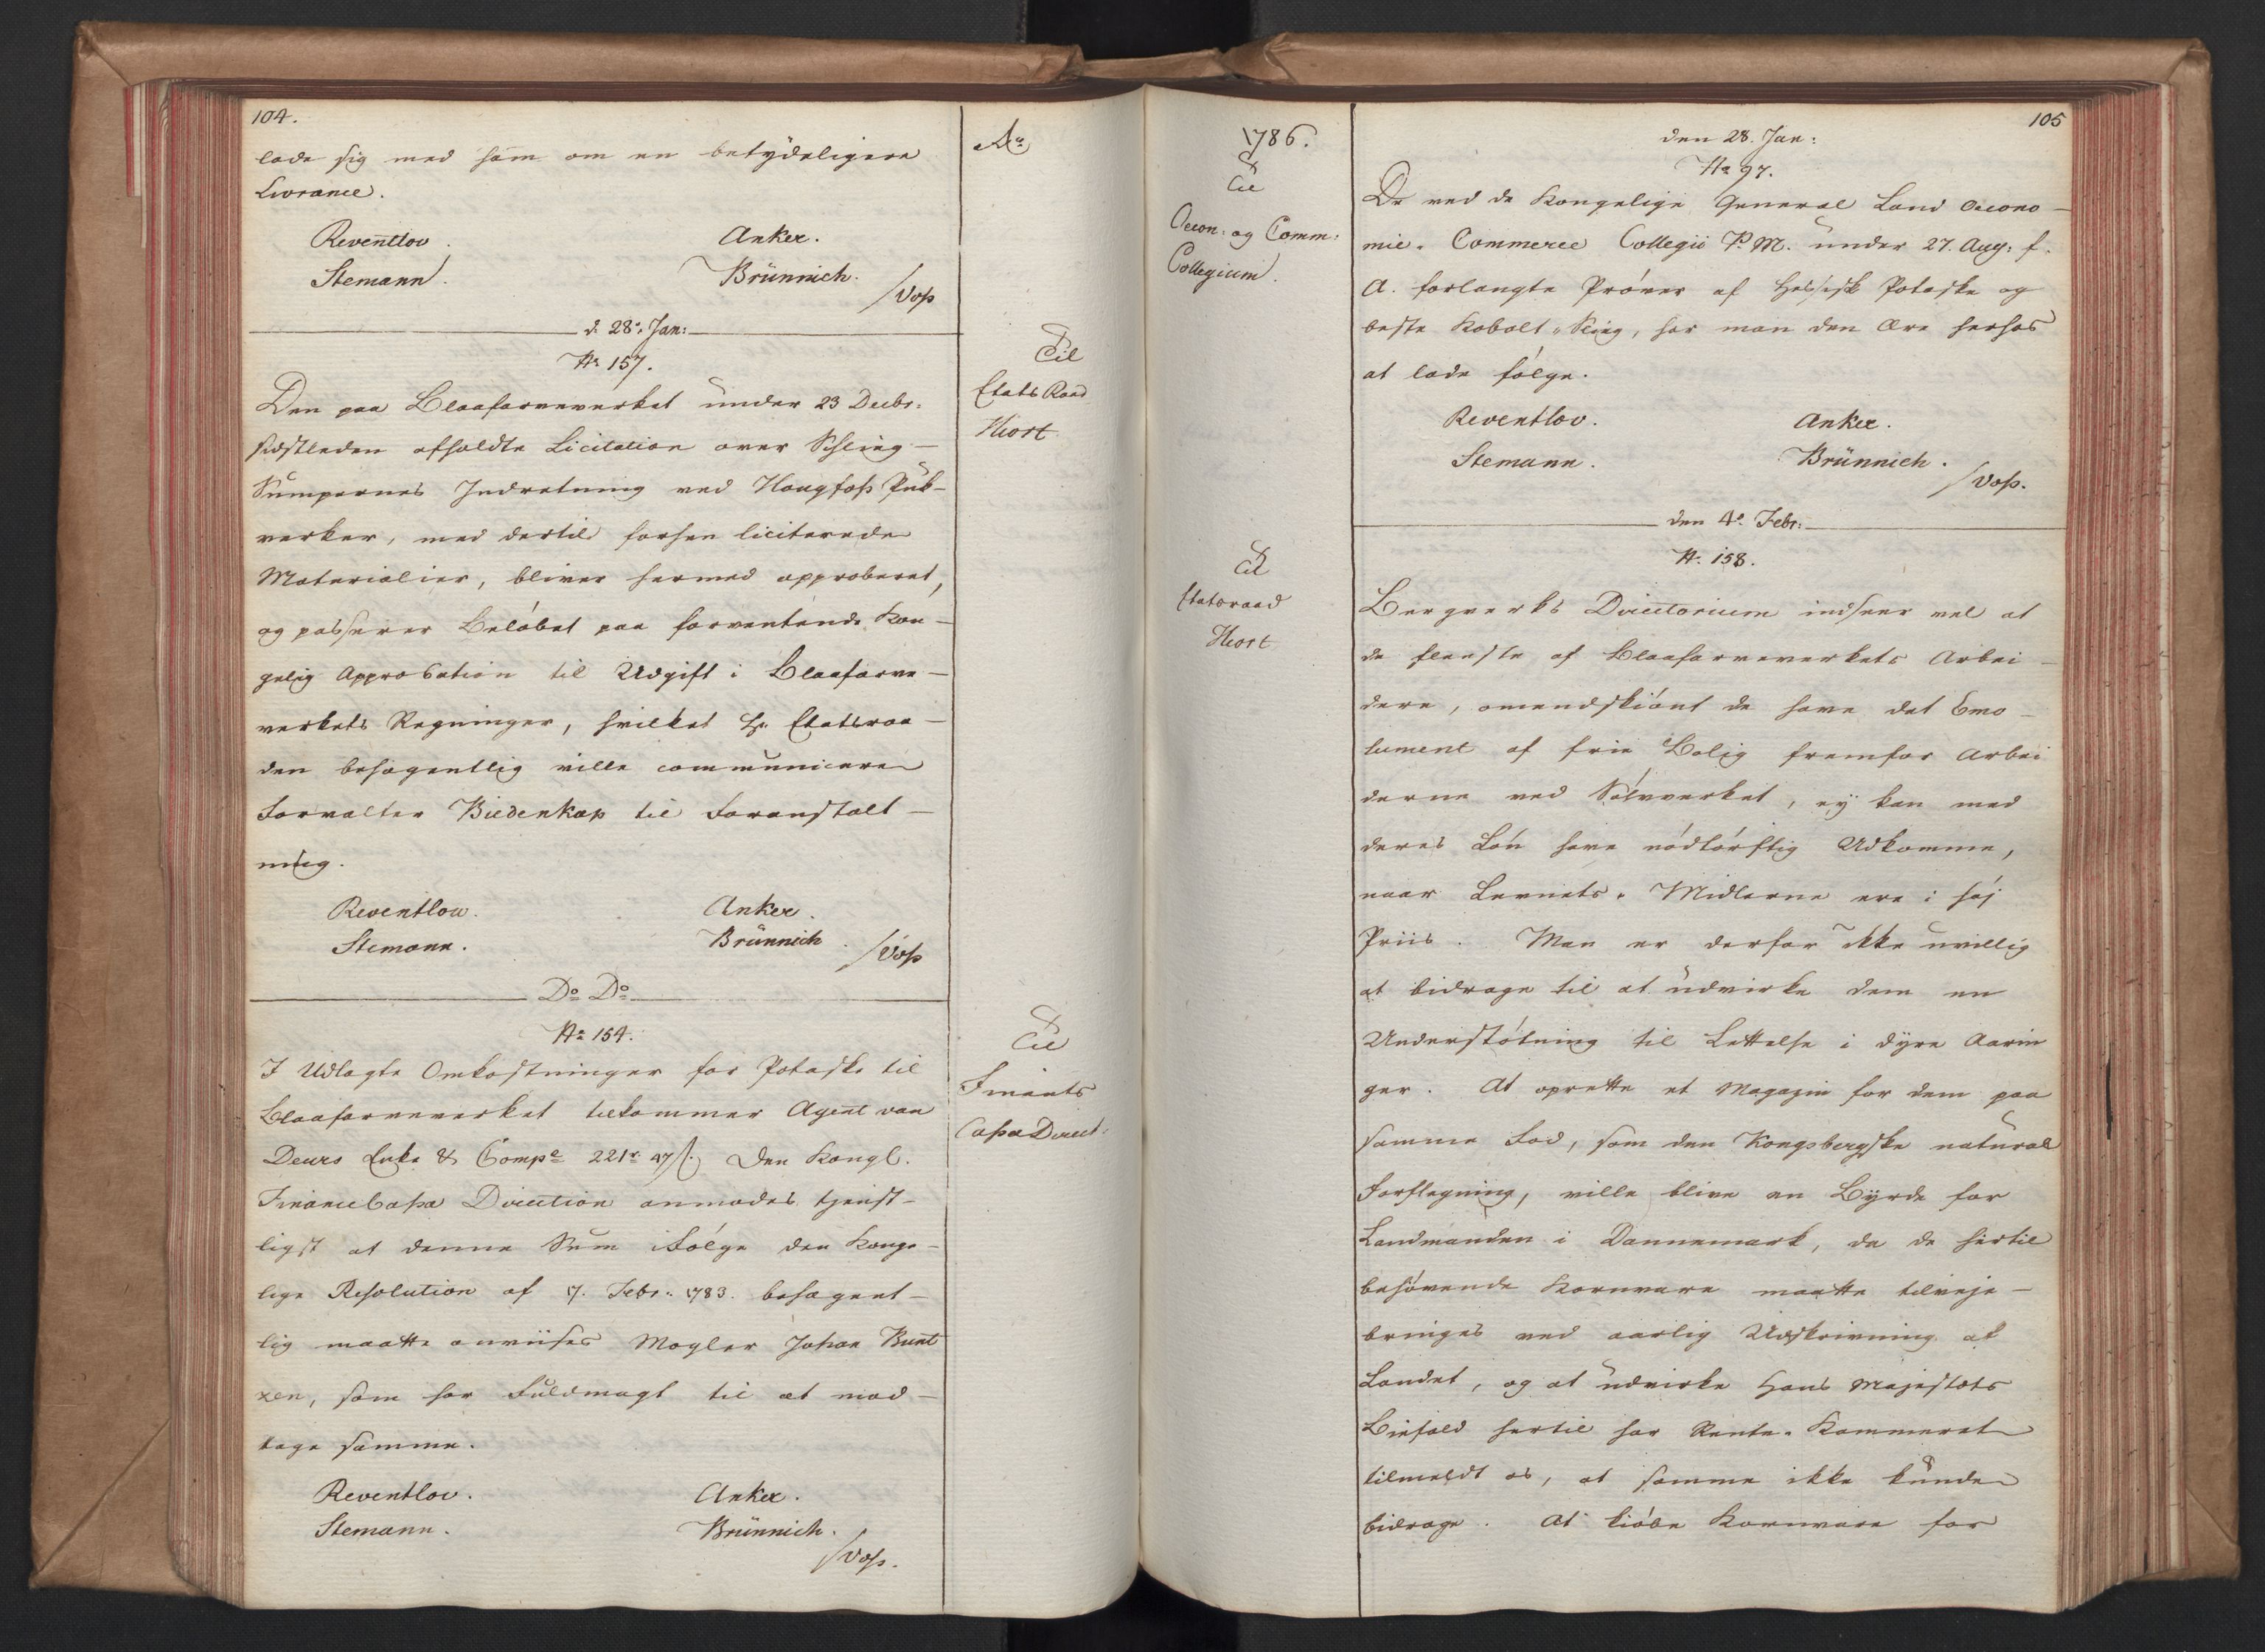 104.
lade sig med ham om en betydeligere
Livrance.
Reventlov. Anker.
Stemann. Brünnich.
/Voss
d. 28de Jan:
No 157.
Den paa Blaafarveverket under 23 Decbr.
sidstleden afholdte Licitation over Schlieg-
Sumpernes Indretning ved Hougfoss Puk-
verker, med dertil forhen liciterede
Materialier, bliver hermed approberet,
og passerer Beløbet paa forventende Kon-
gelig Approbation til Udgift i Blaafarve-
verkets Regninger, hvilket Hr. Etatsraa-
den behagentlig ville communicere
Forvalter Biedenkap til Foranstalt-
ning.
Reventlow. Anker.
Stemann. Brünnich.
/Voss
Do Do
No 154.
I Udlagte Omkostninger for Potaske til
Blaafarveverket tilkommer Agent van
Deurs Enke & Compe 221r 47 s. Den Kongl.
FinanceCassa Direction anmodes tjenst-
ligst at denne Sum ifølge den Konge-
lige Resolution af 17. Febr: 1783. behagent-
lig maatte anviises Mægler Johan Bunt
zen, som har Fuldmagt til at mod-
tage samme.
Reventlov. Anker.
Stemann. Brünnich.
/Voss.
Ao
Til
Etats Raad
Hiort
Til
Finants
Cassa Direct:
1786.
Til
Oecon: og Comm:
Collegium.
Til
Etatsraad
Hiort
105
den 28. Jan:
No 97.
De ved de Kongelige General Land Oecono-
mie- Commerce Collegii P. M. under 27. Aug: f.
A. forlangte Prøver af Hessisk Potaske og
beste Kobolt-Slieg, har man den Ære herhos
at lade følge.
Reventlov. Anker.
Stemann. Brünnich.
/Voss.
den 4de Febr:
No 158.
Bergverks Directorium indseer vel at
de fleeste af Blaafarveverkets Arbei-
dere, omendskiønt de have det Emo-
lument af frie Bolig fremfor Arbei
derne ved Sølvverket, ey kan med
deres Løn have nødtørftig Udkomme,
naar Levnets-Midlerne ere i høj
Priis. Man er derfor ikke uvillig
at bidrage til at udvirke dem en
Understøtning til Lettelse i dyre Aarin
ger. At oprette et Magazin for dem paa
samme Fod, som den Kongsbergske natural
Forflegning, ville blive en Byrde for
Landmanden i Dannemark, da de hertil
behøvende Kornvare maatte tilveje-
bringes ved aarlig Udskrivning af
Landet, og at udvirke Hans Majestæts
Biefald hertil har Rente-Kammeret
tilmeldt os, at samme ikke kunde
bidrage. At kiøbe Kornvare for